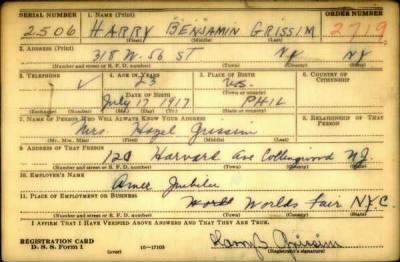 SERIAL NUMBER 1. NAME (Print) ORDER NUMBER
2506 HARRY BENJAMIN GRISSIM 2719
(First) (Middle) (Last)
2. ADDRESS (Print)
318 W. 56 ST NY NY
(Number and street or R. F. D. number) (Town) (County) (State)
3. TELEPHONE 4. AGE IN YEARS 5. PLACE OF BIRTH 6. COUNTRY OF CITIZENSHIP
23
(Town or county)
DATE OF BIRTH
July 17 1917 PHIL
(Exchange) (Number) (Mo.) (Day) (Yr.) (State or country)
7. NAME OF PERSON WHO WILL ALWAYS KNOW YOUR ADDRESS 8. RELATIONSHIP OF THAT PERSON
Mrs. Hazel Grissim
(Mr., Mrs., Miss) (First) (Middle) (Last)
9. ADDRESS OF THAT PERSON
Harvard Ave Collingswood N.J.
(Number and street or R. F. D. number) (Town) (County) (State)
10. EMPLOYER'S NAME
Jubilee
11. PLACE OF EMPLOYMENT OR BUSINESS
Worlds Fair N.Y.C.
(Number and street or R. F. D. number) (Town) (County) (State)
I AFFIRM THAT I HAVE VERIFIED ABOVE ANSWERS AND THAT THEY ARE TRUE.
REGISTRATION CARD
D. S. S. Form 1 (over) 16-17105 (Registrant's signature)
Harry B. Grissim